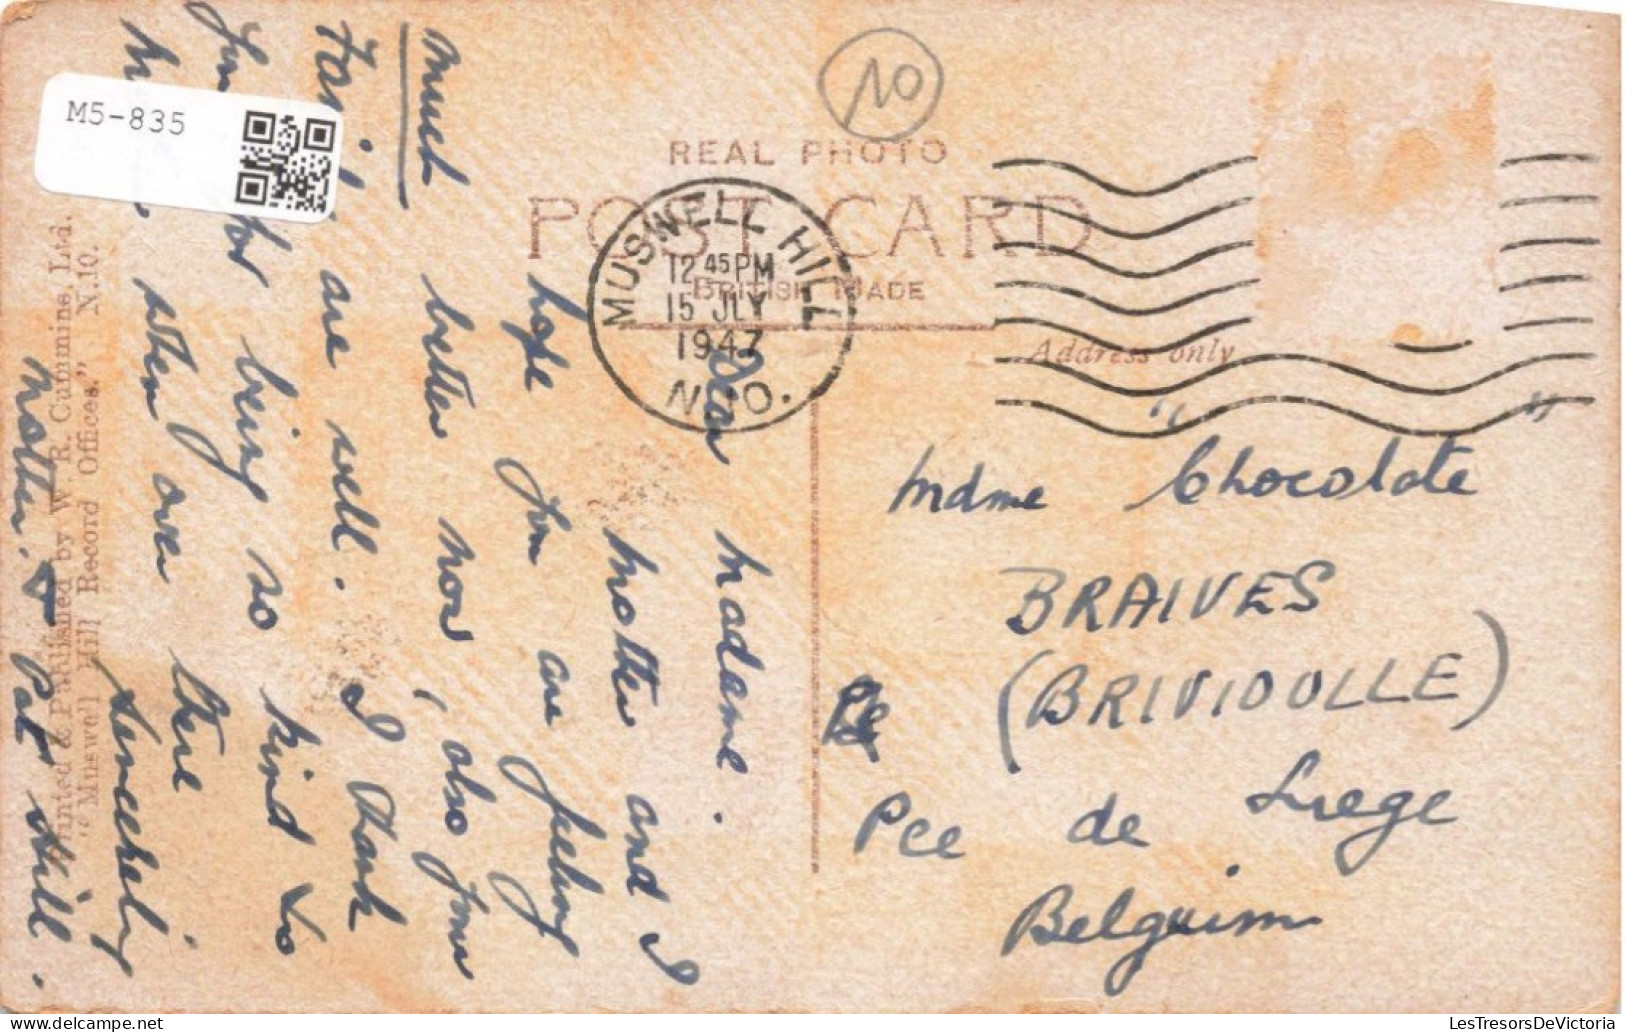 M5-835
10
REAL PHOTO
POST CARD
BRITISH MADE
MUSWELL HILL
12 45 PM
15 JLY
1947
N.10.
Address only
Dear Madame.
Mother and I
hope you are feeling
much better now, also your
Family are well. I thank
you for being so kind to
when over there
Sincerely
Mother. & Pat Hill.
Mdme "Chocolate"
BRAIVES
(BRIVIOULLE)
Pce de Liege
Belguim
Printed & Published by W. R. Cummins, Ltd.
"Muswell Hill Record Offices." N.10.
LesTresorsDeVictoria
www.delcampe.net